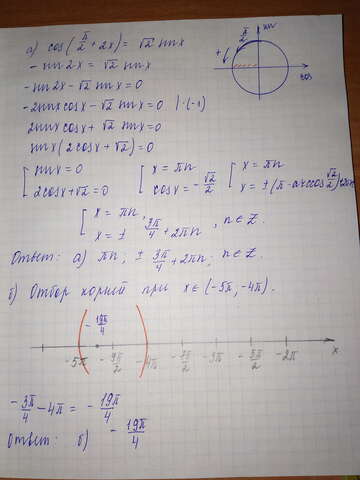 а) cos(π/2 + 2x) = √2 sin x
sin
π/2
+
cos
- sin 2x = √2 sin x
- sin 2x - √2 sin x = 0
- 2 sin x cos x - √2 sin x = 0 | · (-1)
2 sin x cos x + √2 sin x = 0
sin x (2 cos x + √2) = 0
[ sin x = 0 [ x = πn [ x = πn
2 cos x + √2 = 0 cos x = - √2/2 x = ± (π - arccos √2/2) + 2πn
[ x = πn,
x = ± 3π/4 + 2πn, n ∈ Z.
Ответ: а) πn, ± 3π/4 + 2πn, n ∈ Z.
б) Отбор корней при x ∈ (-5π, -4π).
- 19π/4
-5π - 9π/2 -4π - 7π/2 -3π - 5π/2 -2π x
- 3π/4 - 4π = - 19π/4
Ответ: б) - 19π/4